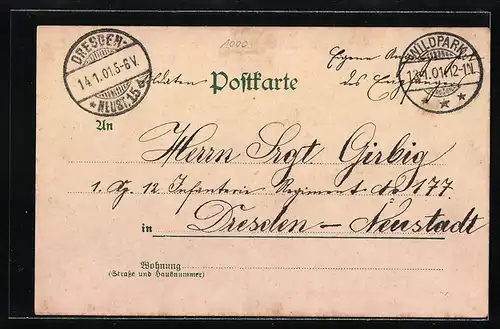 1000.
DRESDEN-
14.1.01.5-6V.
* NEUST. 15
WILDPARK
13.1.01.12-1N.
Soldaten Postkarte Eigene Ang.
des Empfängers
An
Herrn Srgt. Girbig
1. Cp. 12 Infanterie Regiment No 177.
in Dresden – Neustadt
Wohnung
(Straße und Hausnummer)